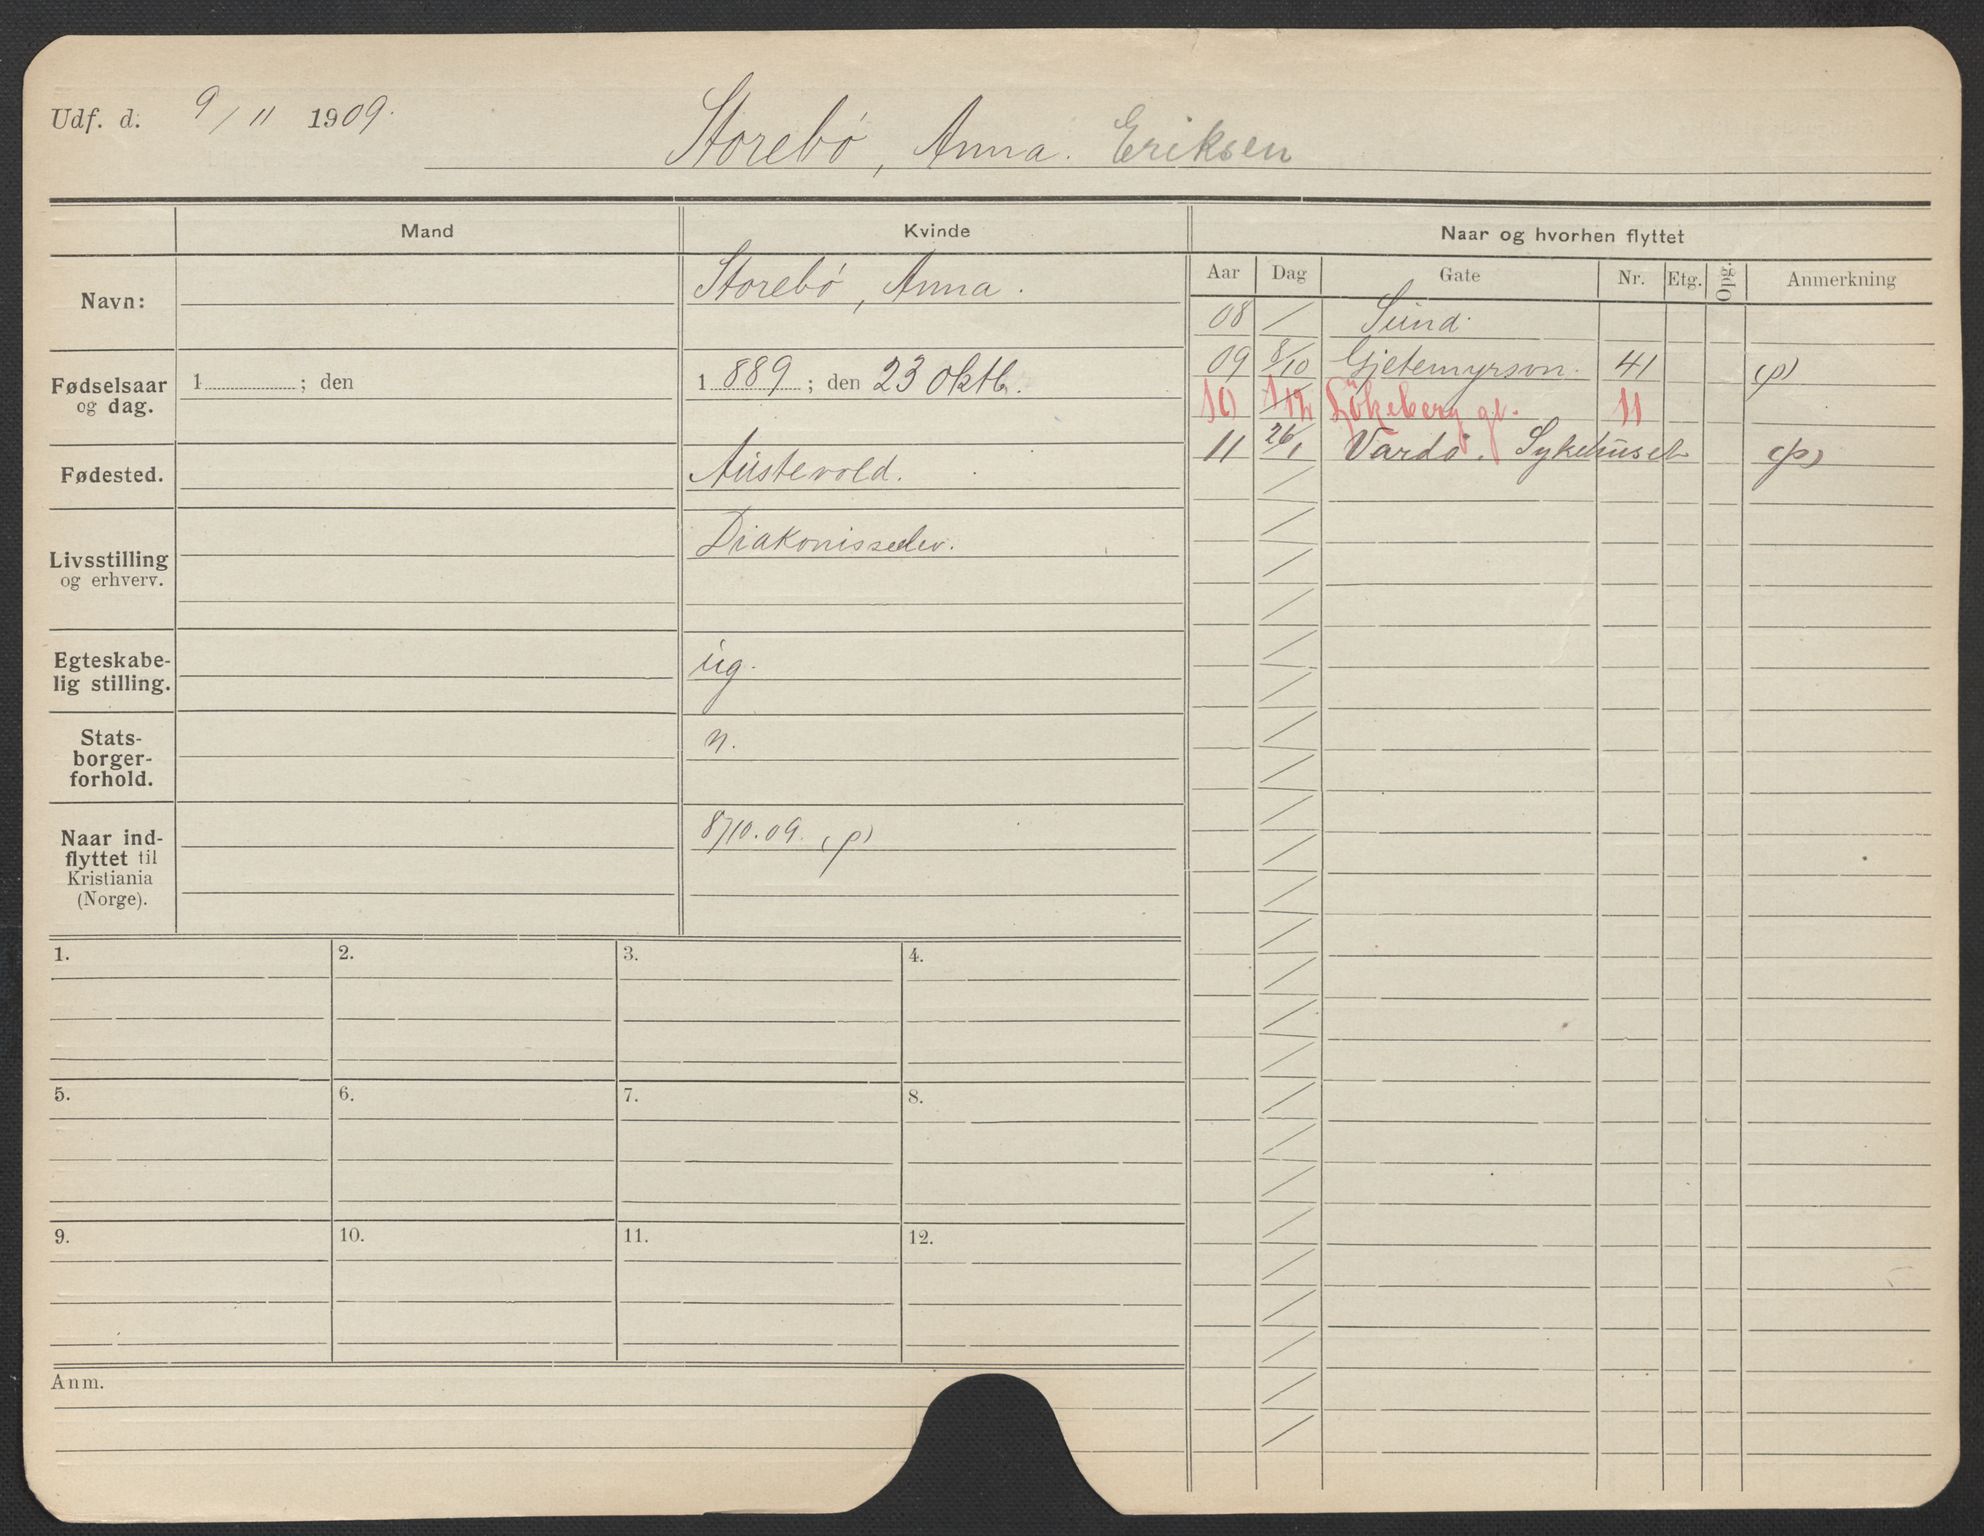 Udf. d. 9/11 1909.
Storebö, Anna. Eriksen
Mand
Kvinde
Naar og hvorhen flyttet
Aar Dag Gate Nr. Etg. Opg. Anmerkning
Navn:
Storebö, Anna.
08 / Sund.
09 8/10 Gjetemyrsvn. 41 (p)
Fødselsaar og dag.
1 ; den
1 889 ; den 23 oktb.
10 1/12 Lökeberg gt. 11
11 26/1 Vardö. Sykehuset (p)
Fødested.
Austevold.
Livsstilling og erhverv.
Diakonisseelev.
Egteskabe-
lig stilling.
ug.
Stats-
borger-
forhold.
n.
Naar ind-
flyttet til
Kristiania
(Norge).
8/10.09. (p)
1. 2. 3. 4.
5. 6. 7. 8.
9. 10. 11. 12.
Anm.